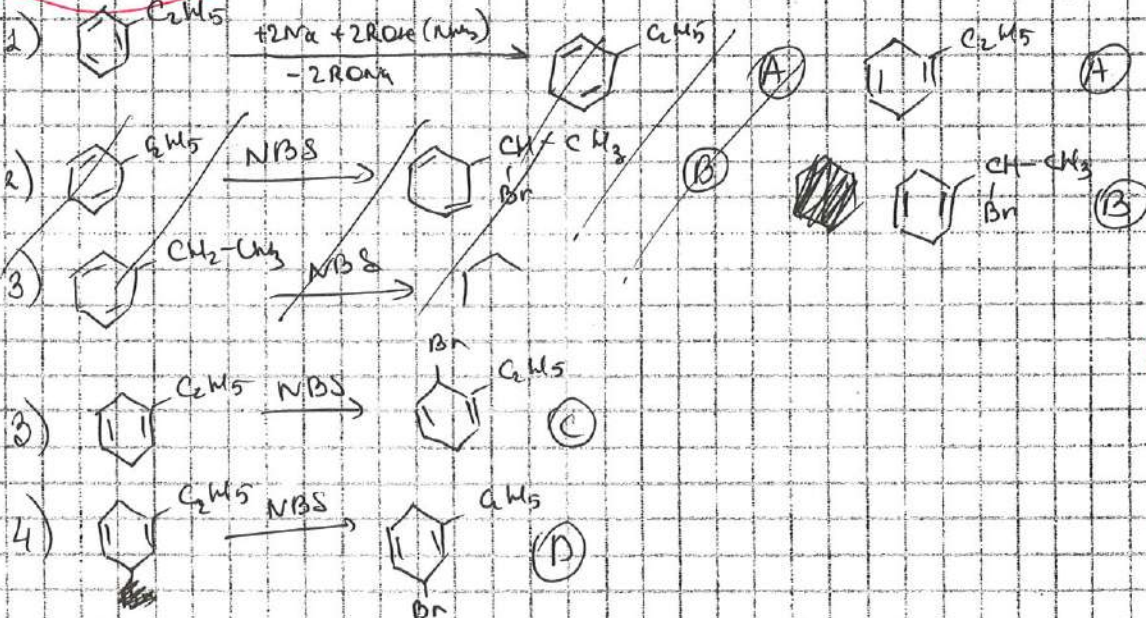 1) C2H5 +2Na +2ROH (NH3) C2H5 (A) C2H5 (A)
- 2RONa
2) C2H5 NBS CH-CH3 (B) CH-CH3 (B)
Br Br
3) CH2-CH3 NBS
Br
3) C2H5 NBS C2H5 (C)
4) C2H5 NBS C2H5 (D)
Br